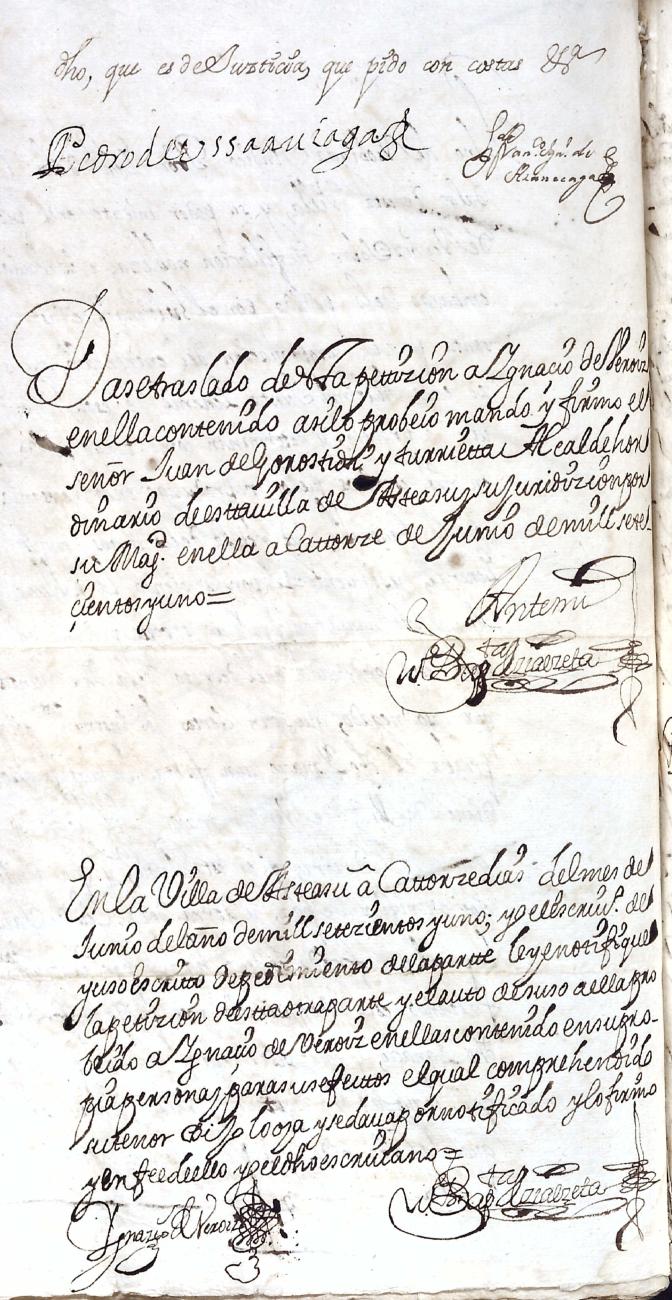 dho, que es de Justicia, que pido con costas &ª
Pedro de Issaauiaga
Dasetraslado de dha petizion a Ygnacio de Veroiz
enella contenido asilo probeio mando y firmo el
señor Juan de Gorostidi y Yurrietta Alcalde hor
dinario de esttauilla de Asteasu y su Juridizion por
su Magd. enella a Cattorze de Junio de mill sete
cientos y uno =
Antemi
En la Villa de Asteasu â Cattorze dias del mes de
Junio del año de mill setezientos y uno, yo el escriuº. de
yuso escritto de pedimiento de la partte ley e notifique
la petizion de estta otra parte y el auto de suso a ella pro
beido a Ygnacio de Veroiz en ellas contenido en su pro-
pia persona, para sus efecttos el qual comprehendido
su tenor Dijo lo oya y se daua por notificado y lo firmo
y en fee de ello yo el dho escriuano =
Ygnazio de Veroiz